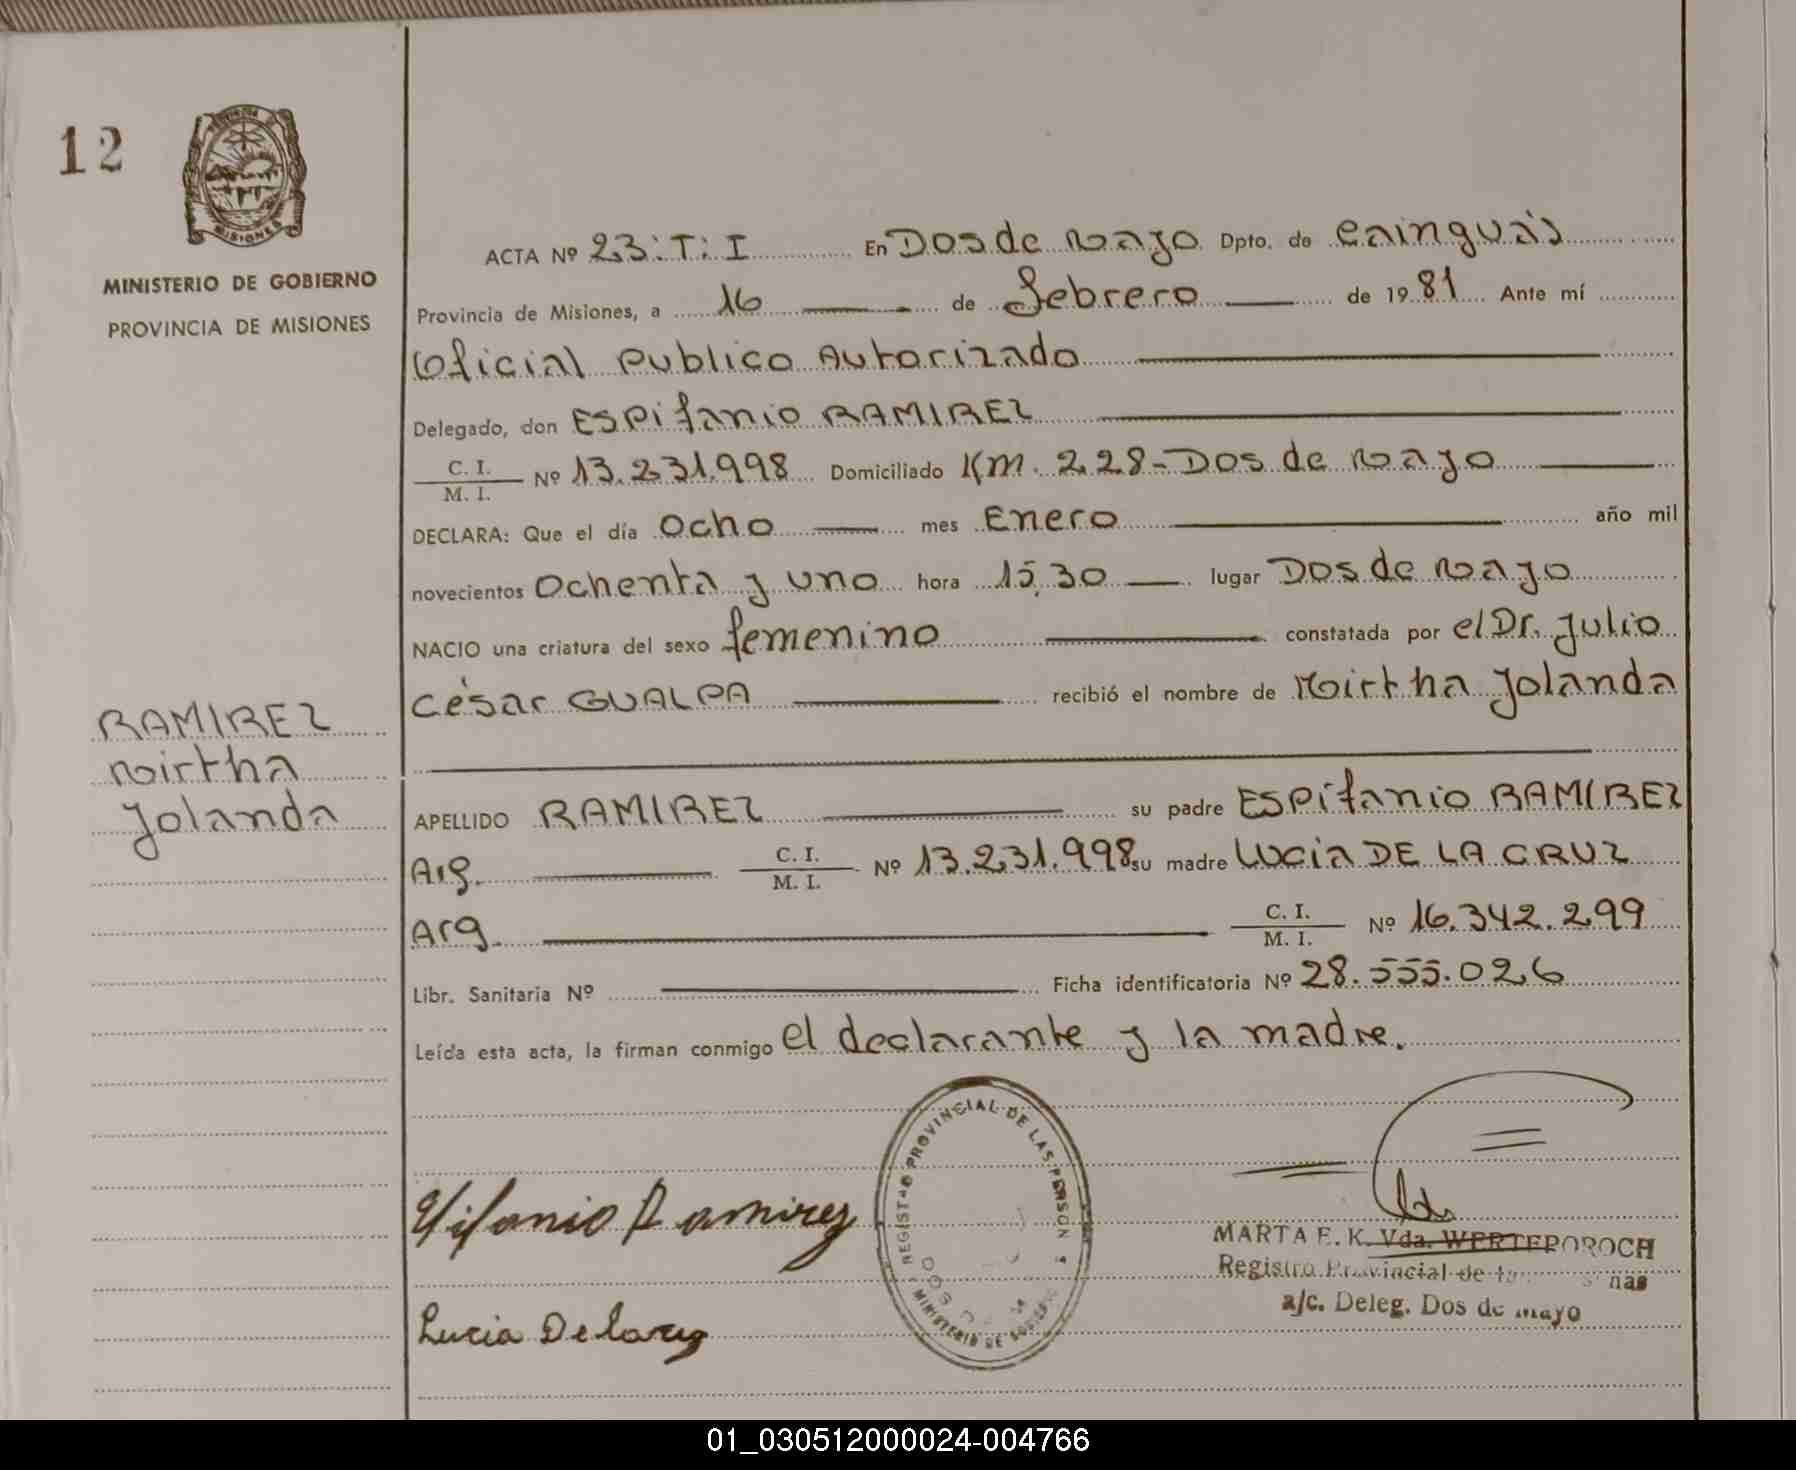 12
MISIONES
MINISTERIO DE GOBIERNO
PROVINCIA DE MISIONES
RAMIREZ
Mirtha
Yolanda
ACTA Nº 23:T:I En Dos de Mayo Dpto. de Cainguás
Provincia de Misiones, a 16 de Febrero de 1981 Ante mí
Oficial Publico Autorizado
Delegado, don ESPifanio RAMIREZ
C. I.
M. I. Nº 13.231.998 Domiciliado Km. 228-Dos de Mayo
DECLARA: Que el día Ocho mes Enero año mil
novecientos Ochenta y uno hora 15,30 lugar Dos de Mayo
NACIO una criatura del sexo femenino constatada por el Dr. Julio
César GUALPA recibió el nombre de Mirtha Yolanda
APELLIDO RAMIREZ su padre ESPifanio RAMIREZ
Arg. C. I.
M. I. Nº 13.231.998 su madre Lucia DE LA CRUZ
Arg. C. I.
M. I. Nº 16.342.299
Libr. Sanitaria Nº Ficha identificatoria Nº 28.555.026
Leída esta acta, la firman conmigo el declarante y la madre.
REGISTRO PROVINCIAL DE LAS PERSON
MINISTERIO DE GOBIERNO
DOS
Ramirez
MARTA E. K. Vda. WERTEPOROCH
Registro Provincial de
a/c. Deleg. Dos de Mayo
Lucia De lacruz
01_030512000024-004766